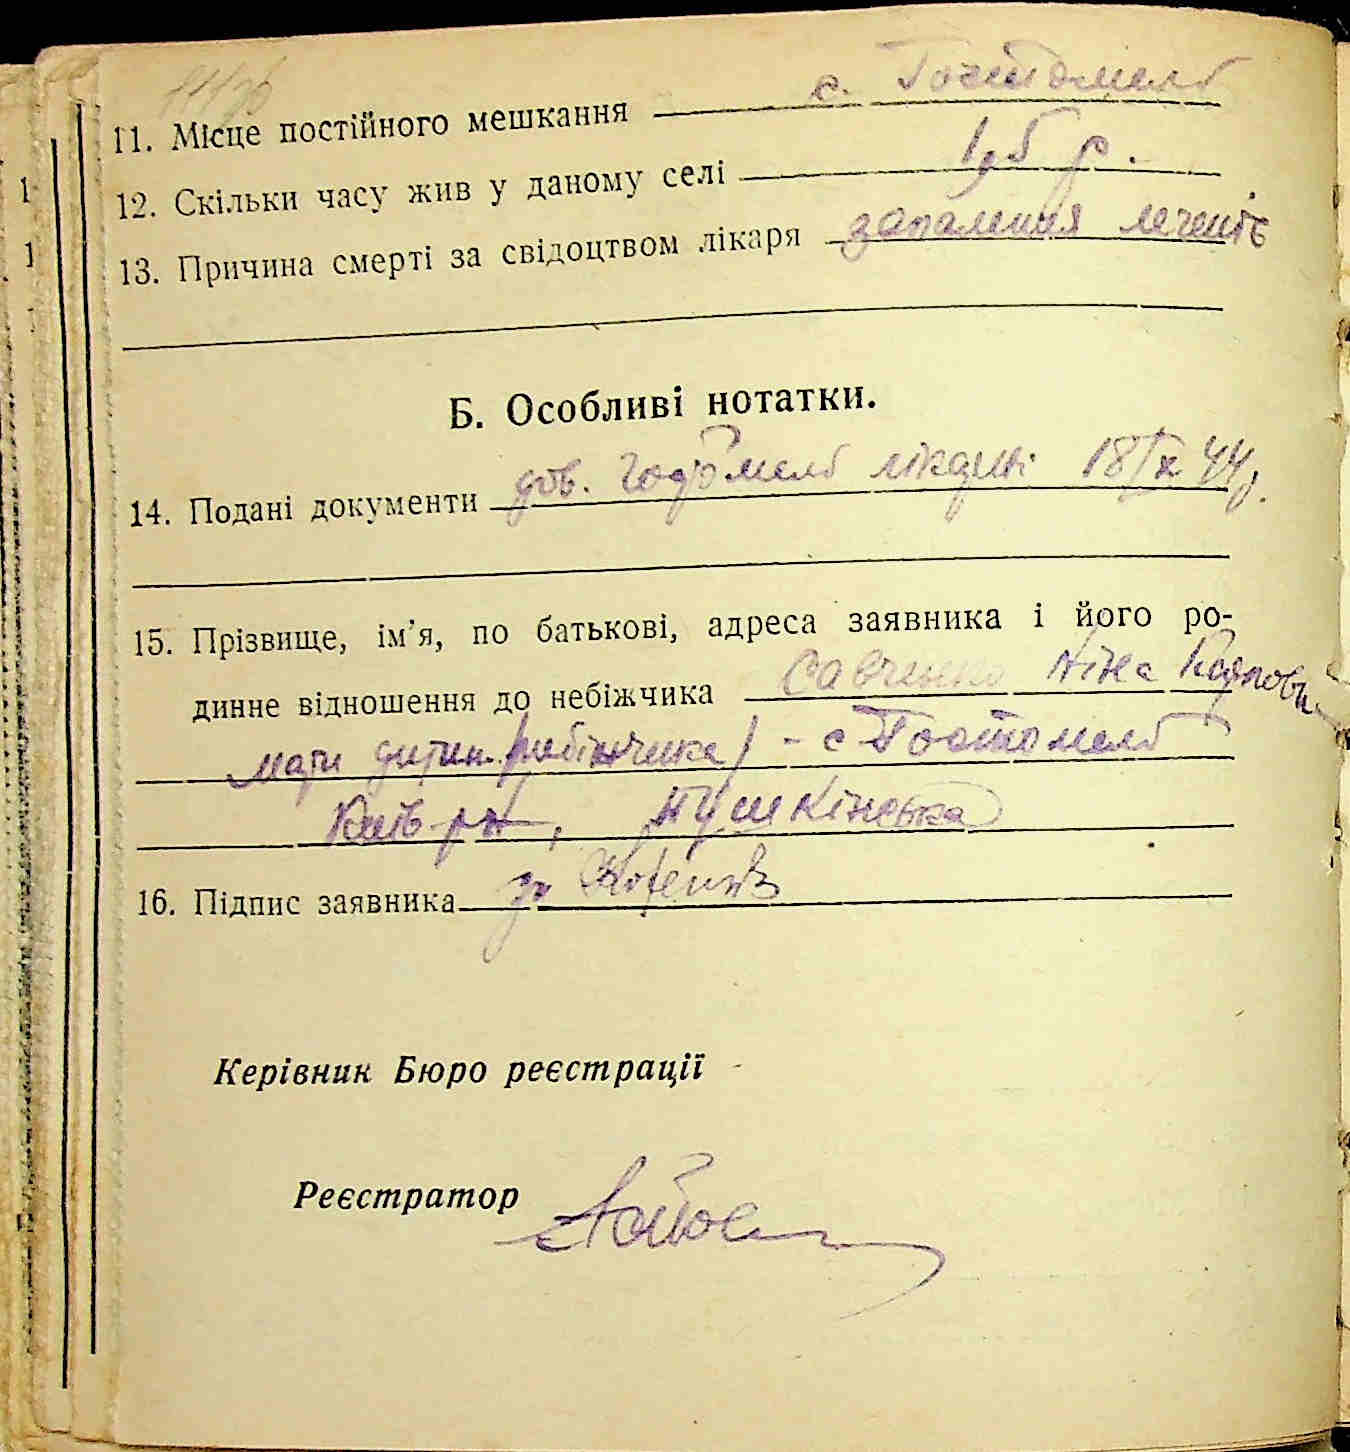 11. Місце постійного мешкання с. Гостомель
12. Скільки часу жив у даному селі 1,5 р.
13. Причина смерті за свідоцтвом лікаря запалення легенів
Б. Особливі нотатки.
14. Подані документи дов. лікарні 18/IX 44 р.
15. Прізвище, ім'я, по батькові, адреса заявника і його ро-
динне відношення до небіжчика Савченко Ніна
мати дитин. (небіжчика) - с Гостомель
Київ р-н, Пушкінська
16. Підпис заявника
Керівник Бюро реєстрації
Реєстратор